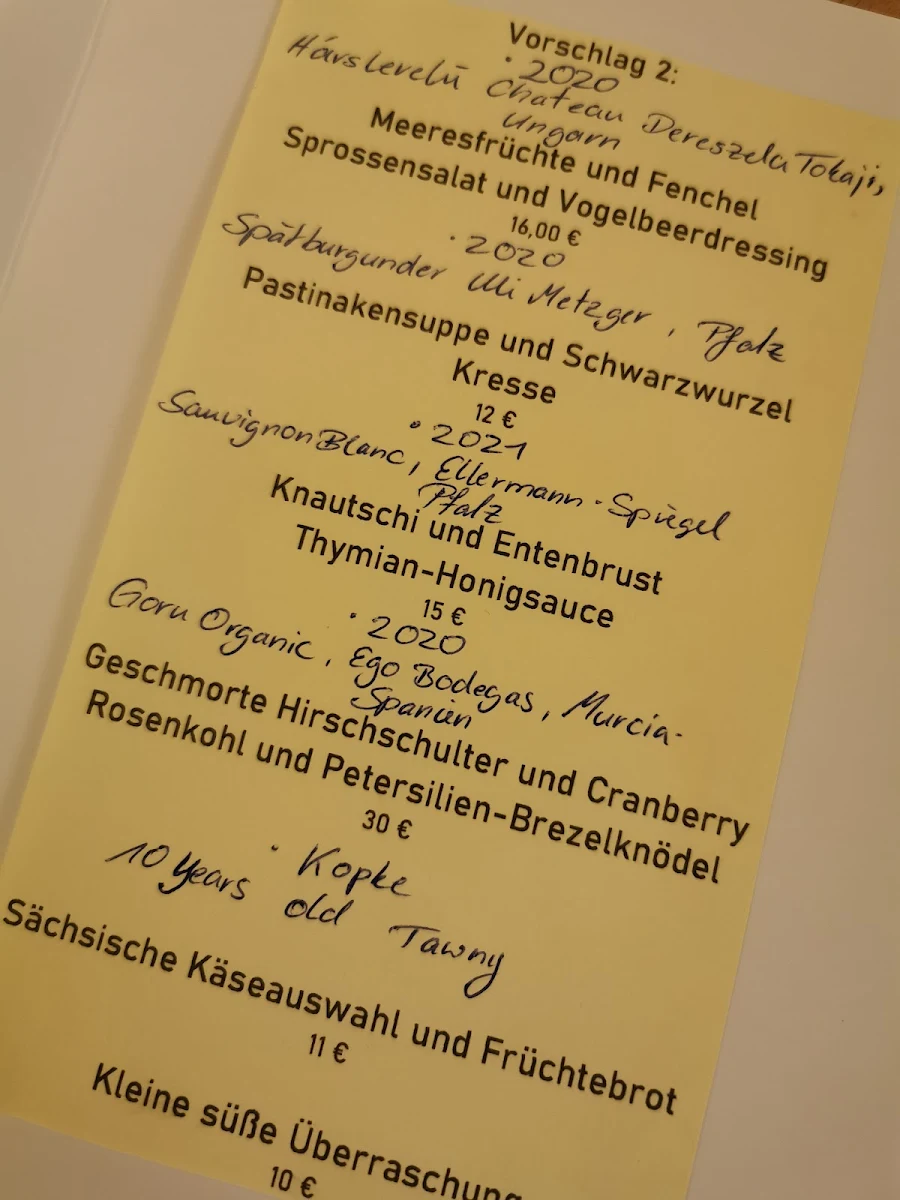 Vorschlag 2:
· 2020
Hárslevelü Chateau Dereszla Tokaji,
Ungarn
Meeresfrüchte und Fenchel
Sprossensalat und Vogelbeerdressing
16,00 €
· 2020
Spätburgunder Uli Metzger, Pfalz
Pastinakensuppe und Schwarzwurzel
Kresse
12 €
· 2021
Sauvignon Blanc, Ellermann-Spiegel
Pfalz
Knautschi und Entenbrust
Thymian-Honigsauce
15 €
· 2020
Goru Organic, Ego Bodegas, Murcia-
Spanien
Geschmorte Hirschschulter und Cranberry
Rosenkohl und Petersilien-Brezelknödel
30 €
· Kopke
10 Years old Tawny
Sächsische Käseauswahl und Früchtebrot
11 €
Kleine süße Überraschung
10 €